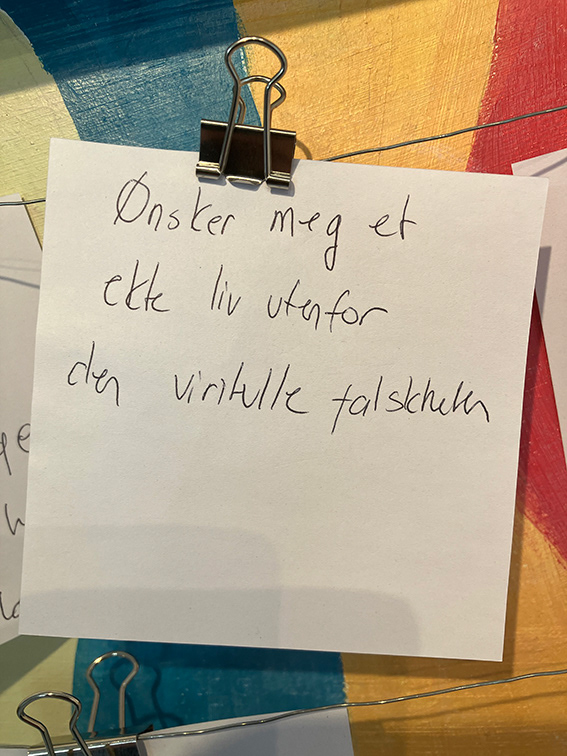 Ønsker meg et
ekte liv utenfor
den viritulle falskheten